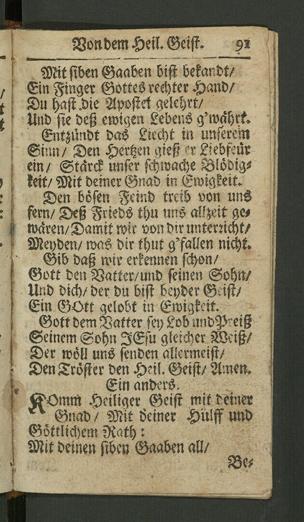 Von dem Heil. Geist. 91
Mit siben Gaaben bist bekandt/
Ein Finger Gottes rechter Hand/
Du hast die Apostel gelehrt/
Und sie deß ewigen Lebens g'währt.
Entzündt das Liecht in unserem
Sinn/ Den Hertzen gieß er Liebfeür
ein/ Stärck unser schwache Blödig-
keit/ Mit deiner Gnad in Ewigkeit.
Den bösen Feind treib von uns
fern/ Deß Frieds thu uns allzeit ge-
wären/ Damit wir von dir unterzicht/
Meyden/ was dir thut g'fallen nicht.
Gib daß wir erkennen schon/
Gott den Vatter/ und seinen Sohn/
Und dich/ der du bist beyder Geist/
Ein GOtt gelobt in Ewigkeit.
Gott dem Vatter sey Lob und Preiß
Seinem Sohn JEsu gleicher Weiß/
Der wöll uns senden allermeist/
Den Tröster den Heil. Geist/ Amen.
Ein anders.
Komm Heiliger Geist mit deiner
Gnad/ Mit deiner Hülff und
Göttlichem Rath:
Mit deinen siben Gaaben all/
Be-